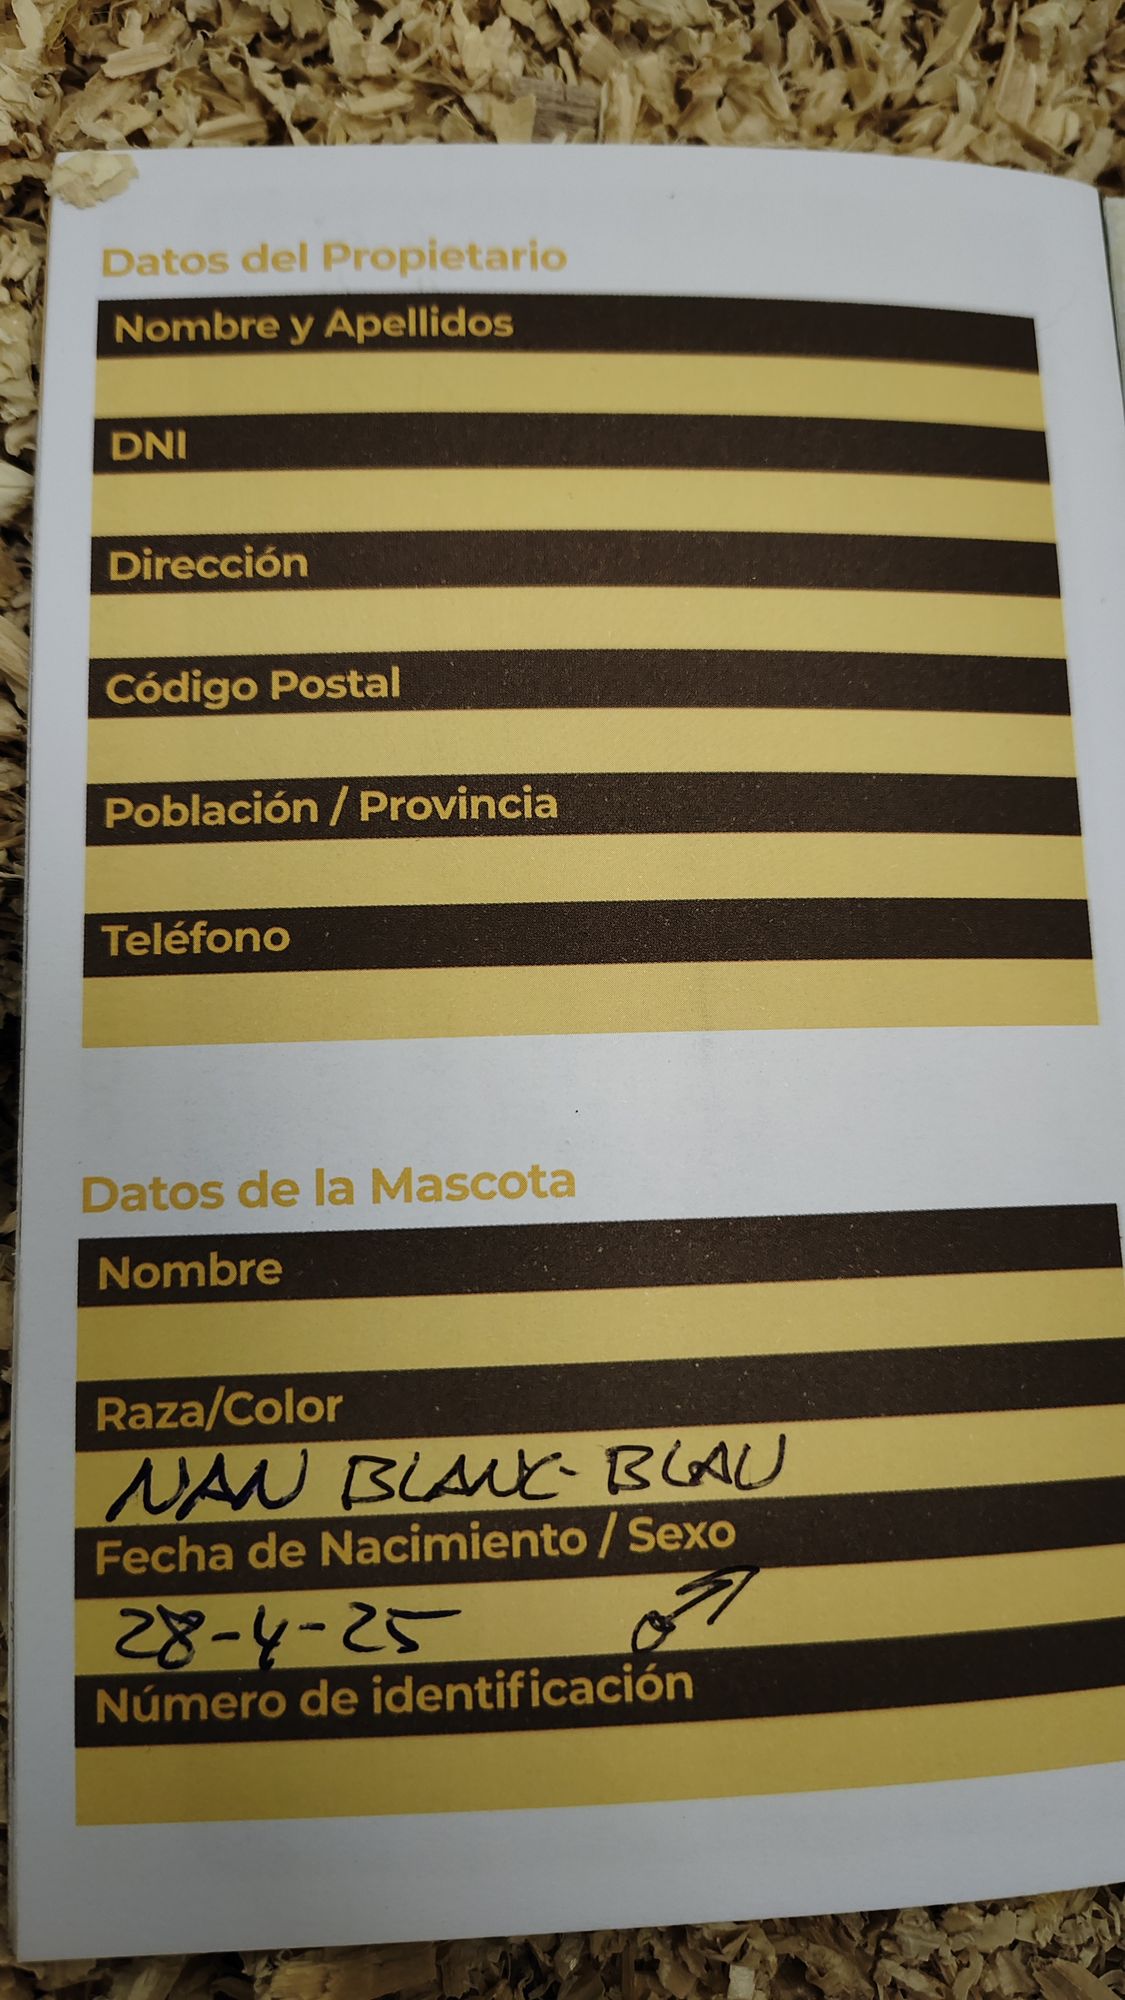 Datos del Propietario
Nombre y Apellidos
DNI
Dirección
Código Postal
Población / Provincia
Teléfono
Datos de la Mascota
Nombre
Raza/Color
NAN BLANC-BLAU
Fecha de Nacimiento / Sexo
28-4-25 ♂
Número de identificación